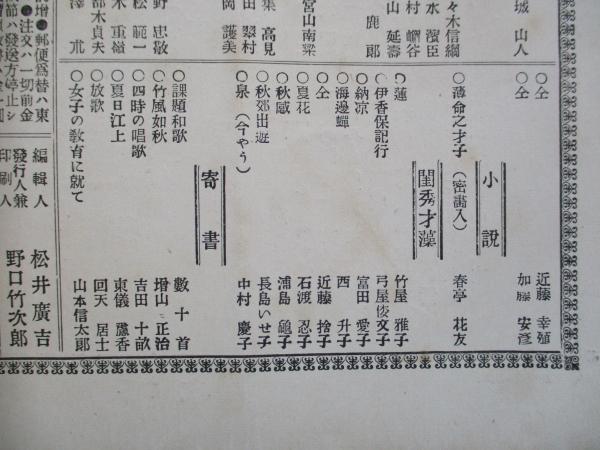 城山人
々木信綱
水濱臣
村嶰谷
山延壽
鹿郎
宮山南梁
集高見
田翠村
岡護美
野忠敬
松範一
木重嶺
都木貞夫
澤朮
○仝 近藤 幸殖
○仝 加藤 安彦
小説
○薄命之才子(密畫入) 春亭 花友
閨秀才藻
○蓮 竹屋 雅子
○伊香保記行 弓屋倭文子
○納凉 富田 愛子
○海邊蟬 西 升子
○仝 近藤 捨子
○夏花 石渡 忍子
○秋感 浦島 龜子
○秋郊出遊 長島いせ子
○泉(今やう) 中村 慶子
寄書
○課題和歌 數十首
○竹風如秋 增山 正治
○四時の唱歌 吉田 十畝
○夏日江上 東儀 蘆香
○放歌 回天 居士
○女子の敎育に就て 山本信太郎
增●郵便爲替ハ東
●注文ハ一切前金
節ハ發送方停止シ
編輯人 松井廣吉
發行人兼
印刷人 野口竹次郎